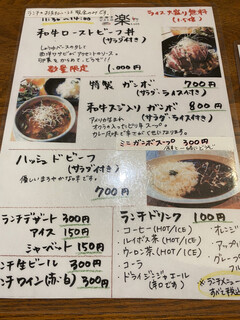 11:30〜14:00
楽
ライス大盛り無料
和牛ローストビーフ丼
(サラダ付き)
しょうゆベースのタレと
数量限定
1,000円
特製 ガンボ 700円
(サラダ・ライス付き)
和牛スジ入り ガンボ 800円
(サラダ・ライス付き)
ミニガンボスープ 300円
ハッシュドビーフ
(サラダ付き)
優しいまろやかな味です。
700円
ランチデザート 300円
アイス 150円
シャーベット 150円
ランチ生ビール 300円
ランチワイン(赤・白) 300円
ランチドリンク 100円
・コーヒー(HOT/ICE)
・ルイボス茶(HOT/ICE)
・ウーロン茶(HOT/ICE)
・コーラ
・ドライジンジャエール
(辛口です)
・オレンジ
・アップル
・グレープ